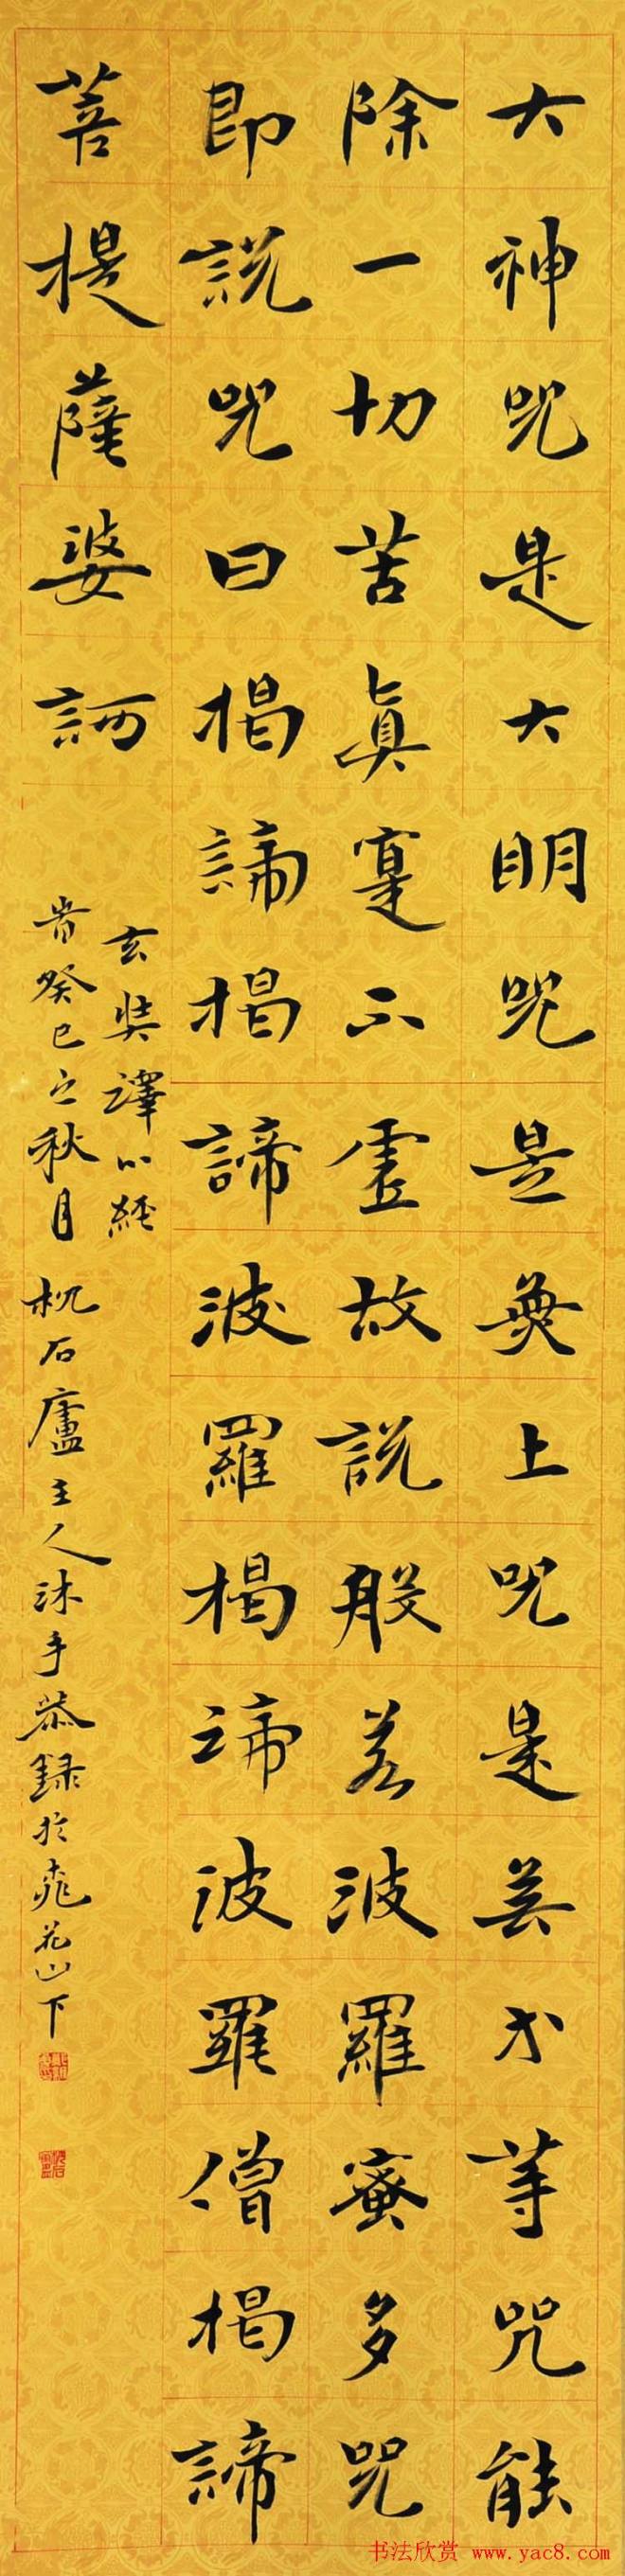 大神咒是大明咒是無上咒是無等等咒能
除一切苦真寔不虛故說般若波羅蜜多咒
即說咒曰揭諦揭諦波羅揭諦波羅僧揭諦
菩提薩婆訶
玄奘譯心經
旹癸巳之秋月枕石廬主人沐手恭録於桃花山下
书法欣赏 www.yac8.com